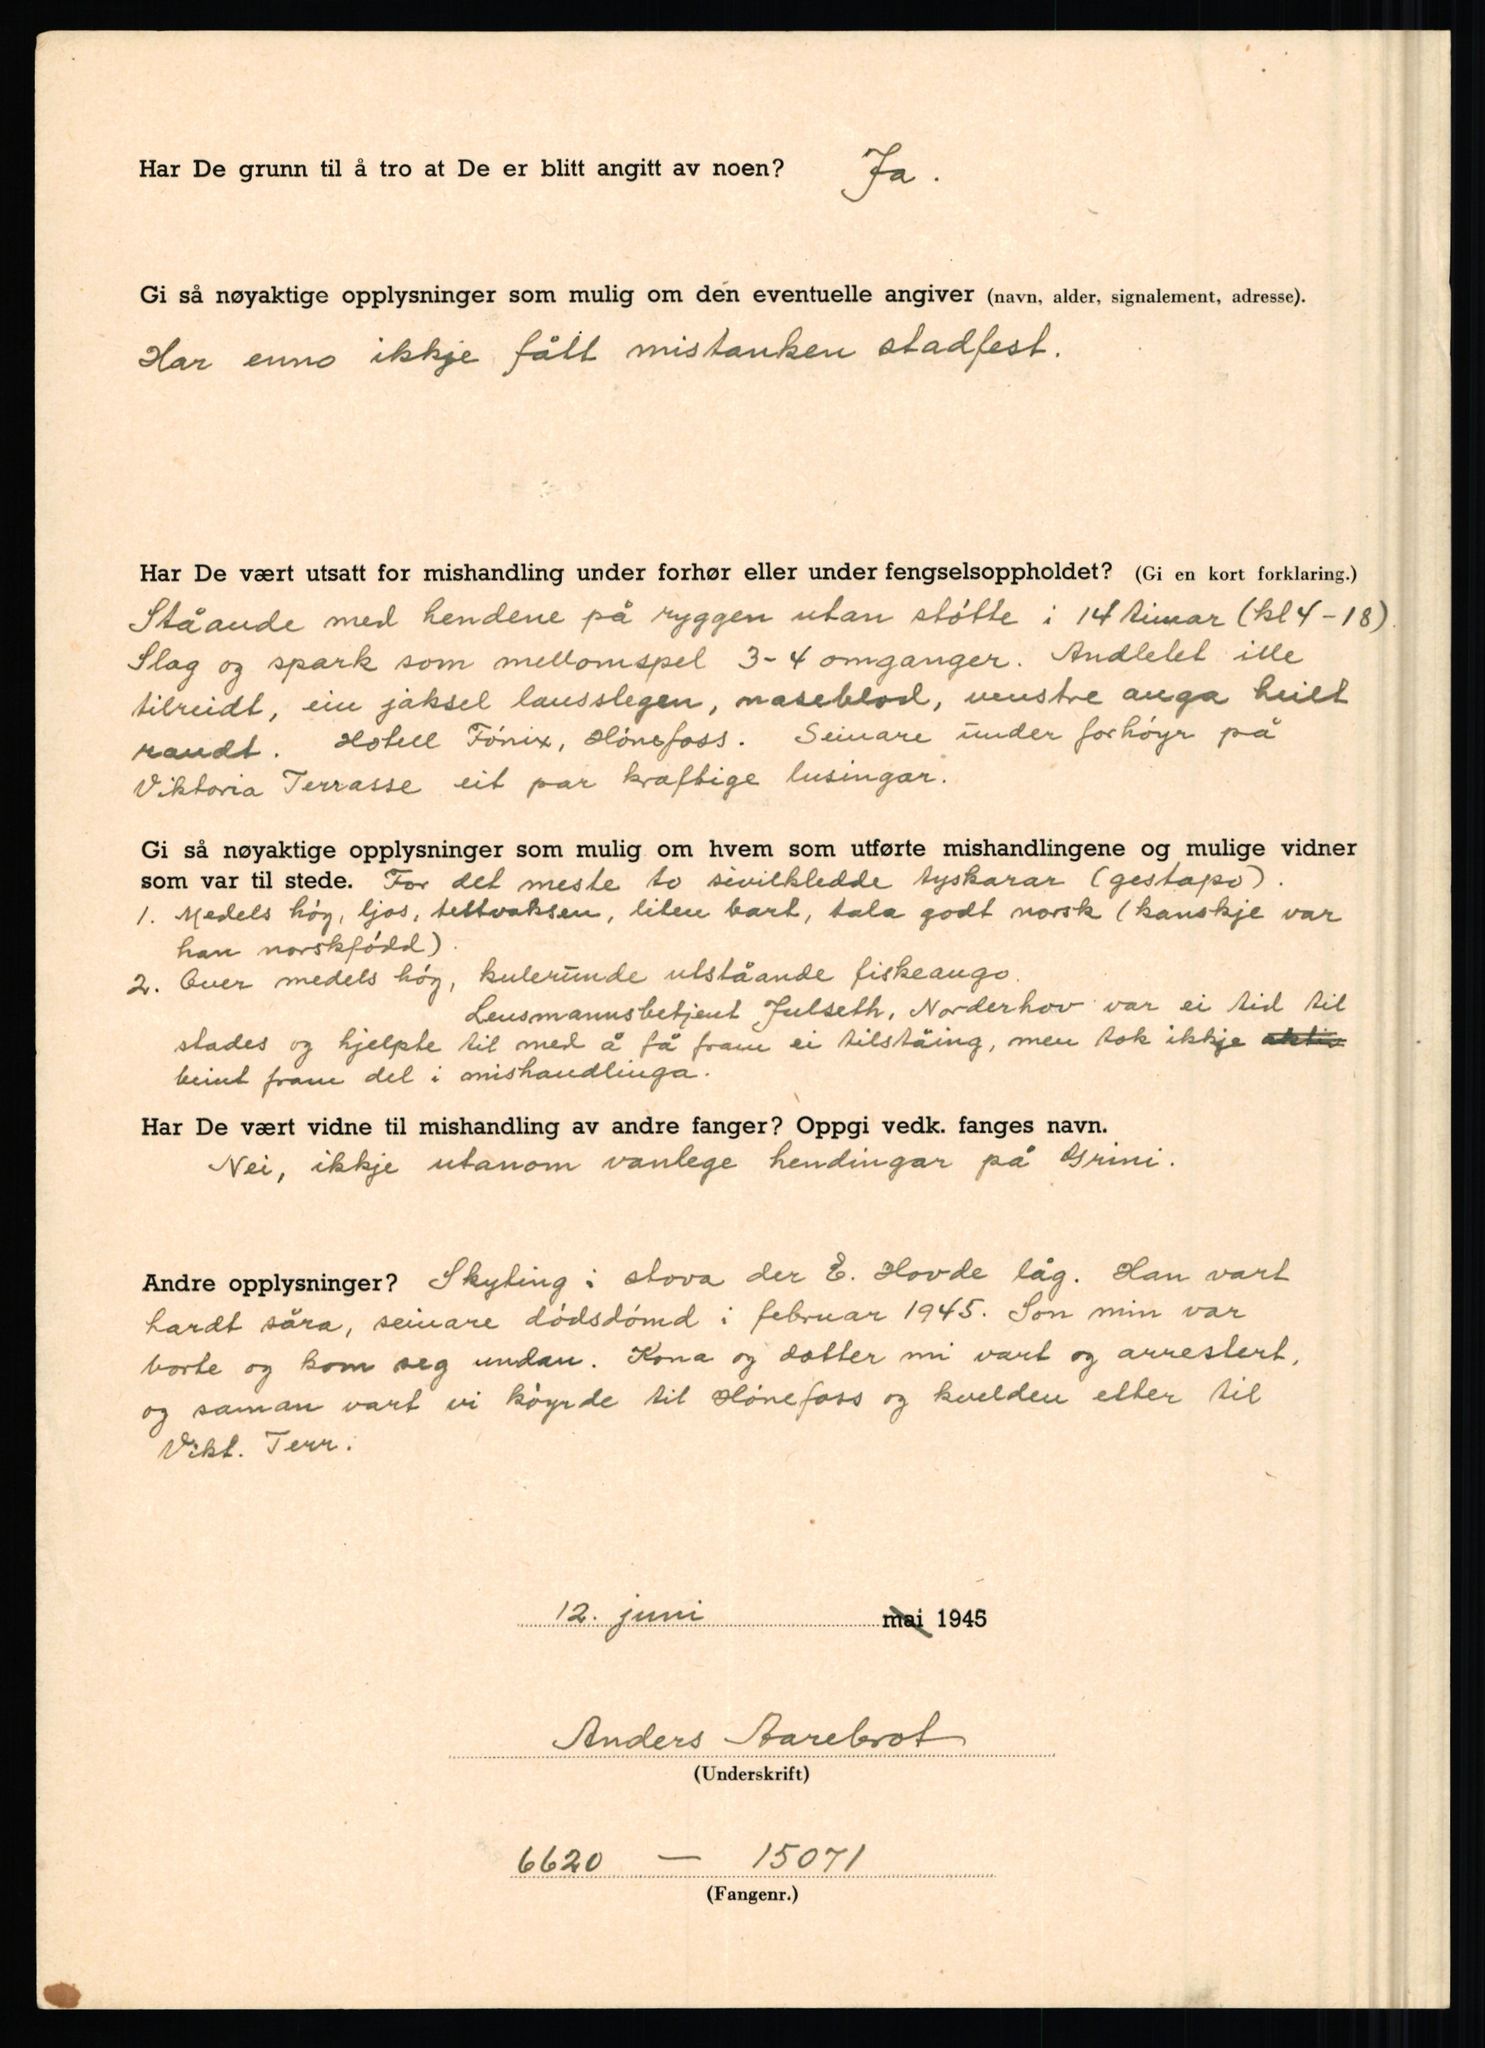 Har De grunn til å tro at De er blitt angitt av noen? Ja.
Gi så nøyaktige opplysninger som mulig om den eventuelle angiver (navn, alder, signalement, adresse).
Har enno ikkje fått mistanken stadfest.
Har De vært utsatt for mishandling under forhør eller under fengselsoppholdet? (Gi en kort forklaring.)
Ståande med hendene på ryggen utan stótte i 14 timar (kl 4-18).
Slag og spark som mellomspel 3-4 omganger. Andletet ille
tilreidt, ein jaksel lausslegen, naseblod, venstre auga heilt
raudt. Hotell Fónix, Hónefoss. Seinare under forhóyr på
Viktoria Terrasse eit par kraftige lusingar.
Gi så nøyaktige opplysninger som mulig om hvem som utførte mishandlingene og mulige vidner
som var til stede. For det meste to sivilkledde tyskarar (gestapo).
1. Medels hóg, ljos, tettvaksen, liten bart, tala godt norsk (kanskje var
han norskfódd).
2. Over medels hóg, kulerunde utståande fiskeaugo.
Lensmannsbetjent Julseth, Norderhov var ei tid til
stades og hjelpte til med å få fram ei tilståing, men tok ikkje aktiv
beint fram del i mishandlinga.
Har De vært vidne til mishandling av andre fanger? Oppgi vedk. fanges navn.
Nei, ikkje utanom vanlege hendingar på Grini.
Andre opplysninger? Skyting i stova der E. Hovde låg. Han vart
hardt såra, seinare dódsdómd i februar 1945. Son min var
borte og kom seg undan. Kona og dotter mi vart og arrestert,
og saman vart vi kóyrde til Hónefoss og kvelden etter til
Vikt. Terr.
12. juni mai 1945
Anders Aarebrot
(Underskrift)
6620 — 15071
(Fangenr.)